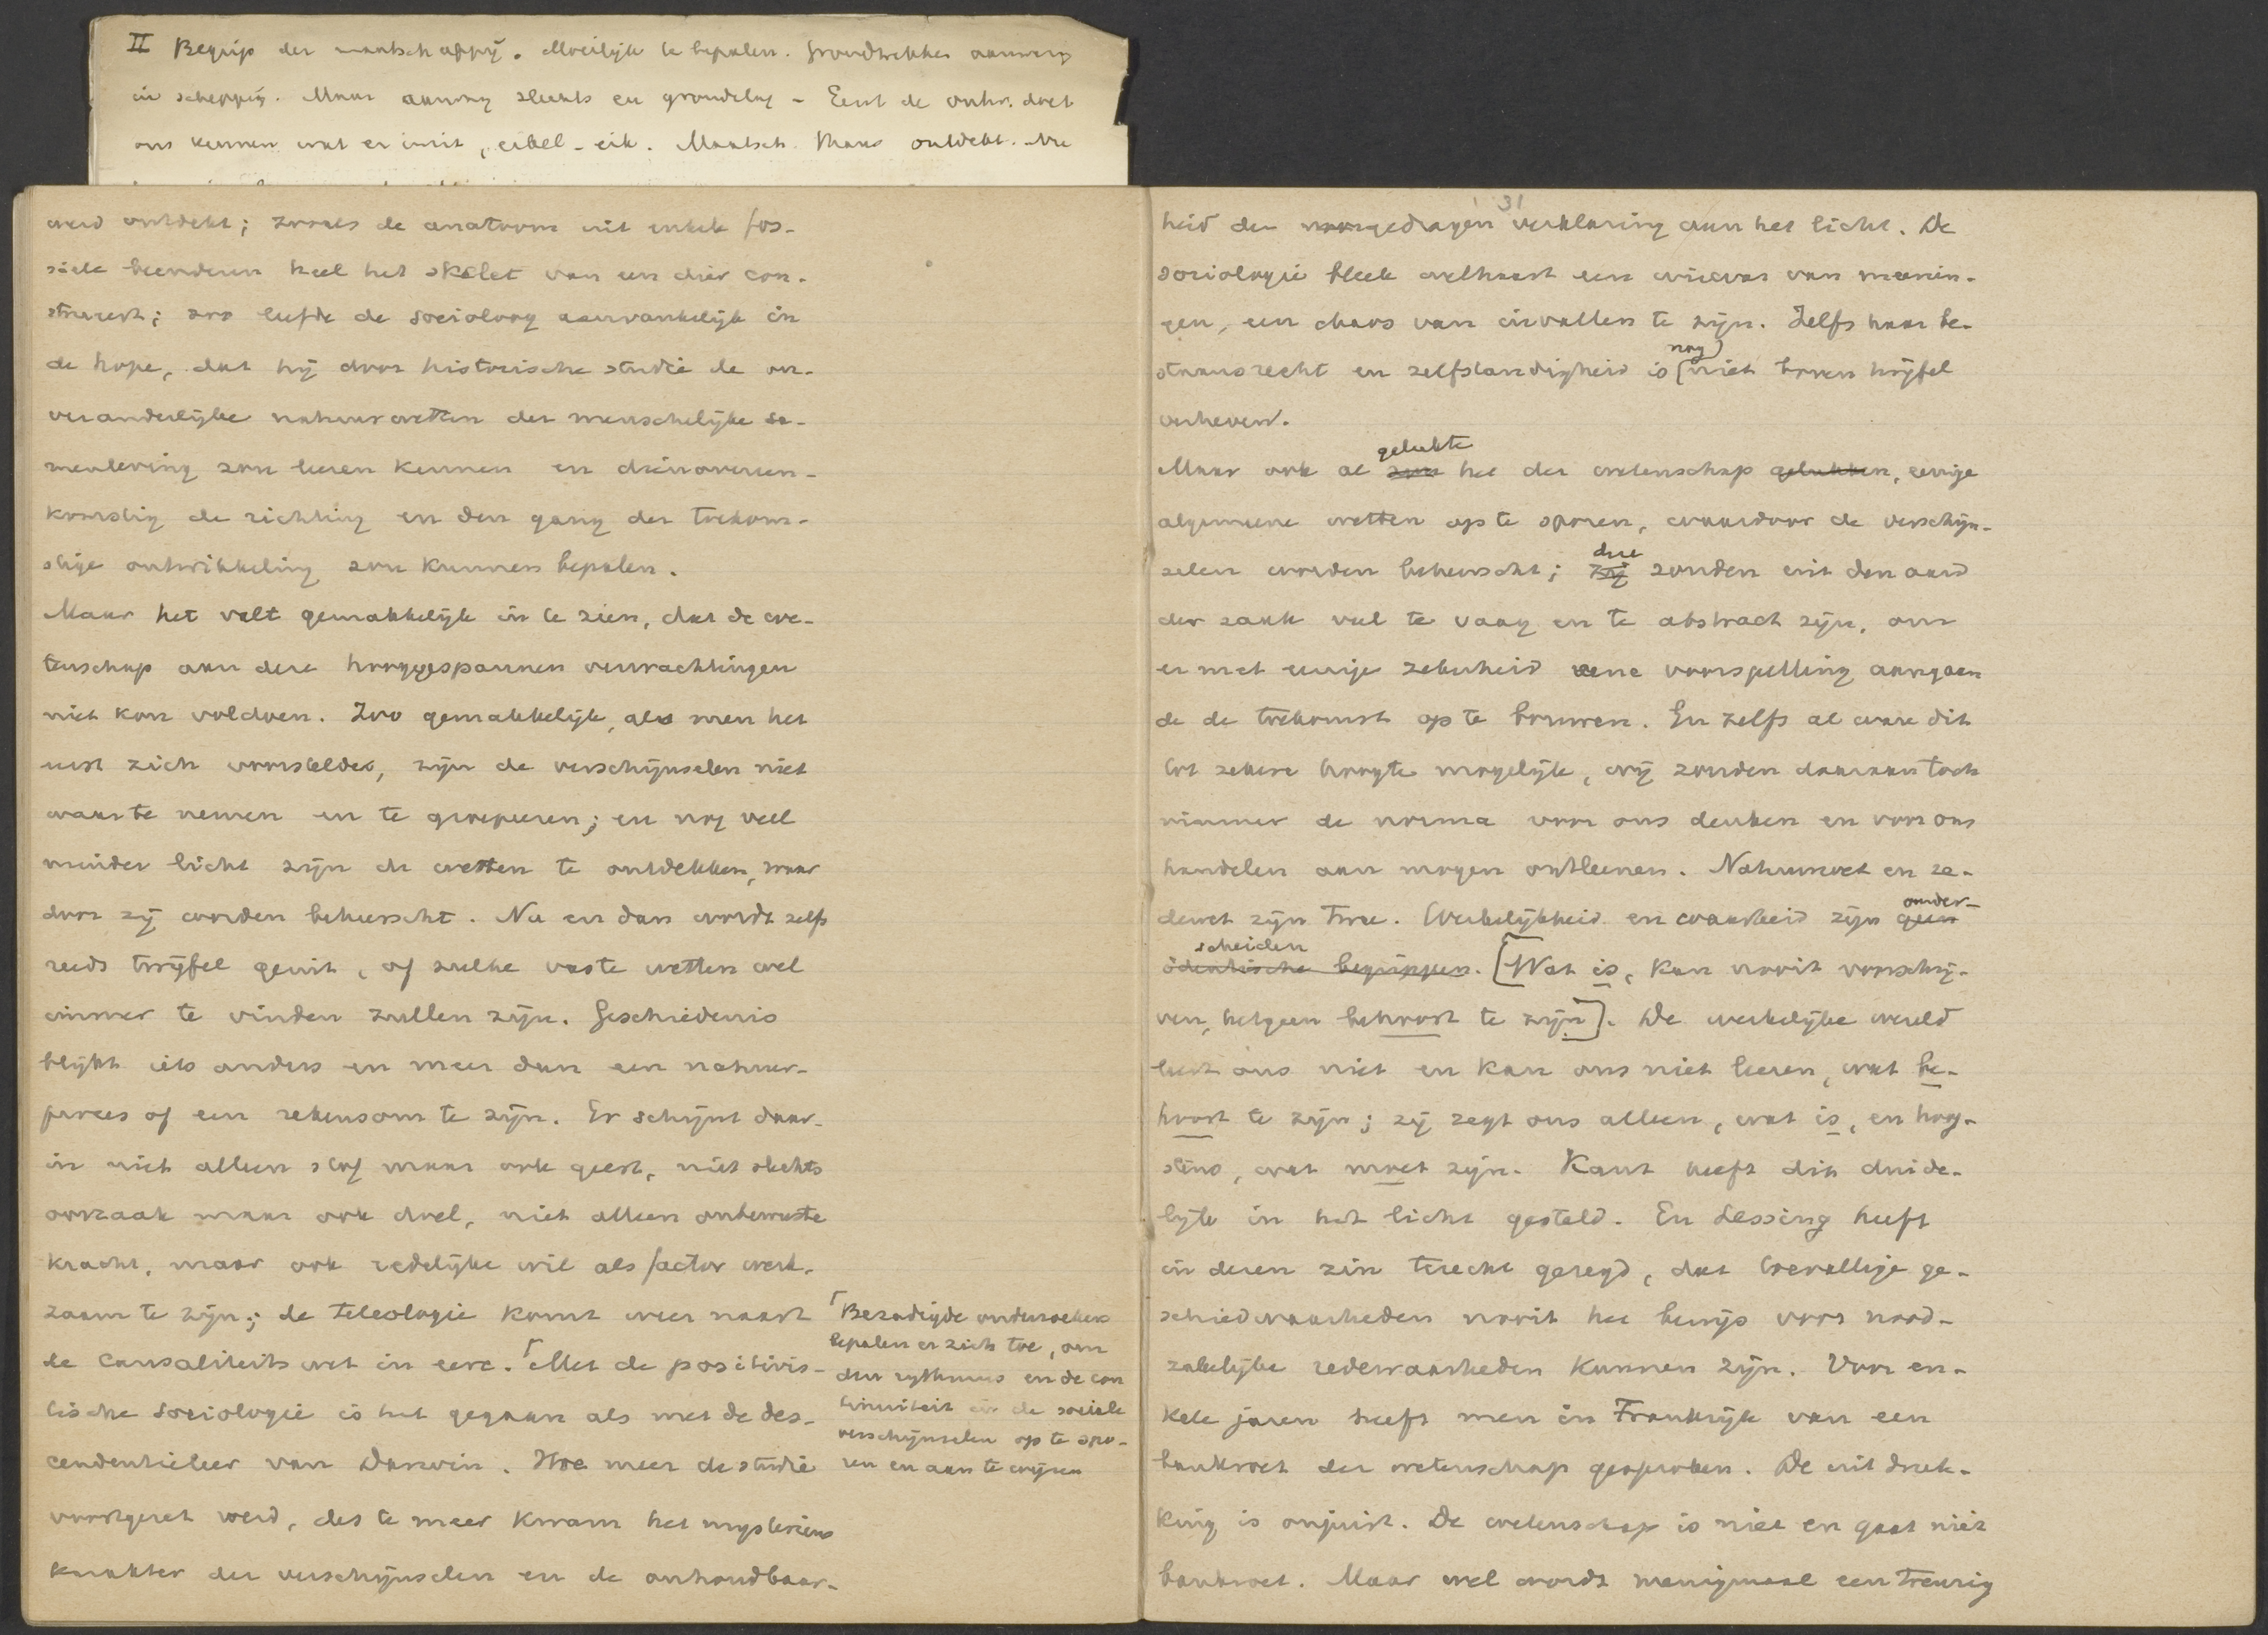 II Begrip der maatschappij. Moeilijk te bepalen. Grondtrekken aanwezig
in schepping. Maar aanwezig slechts en grondslag - Eerst de ontw. doet
ons kennen wat er in zit, eikel - eik. Maatsch. thans ontdekt. Nu
werd ontdekt; zooals de anatoom uit enkele fos-
siele beenderen heel het skelet van een dier con-
strueert; zoo leefde de socioloog aanvankelijk in
de hope, dat hij door historische studie de on-
veranderlijke natuurwetten der menschelijke sa-
menleving zou leeren kennen en dienovereen-
komstig de richting en den gang der toekom-
stige ontwikkeling zou kunnen bepalen.
Maar het valt gemakkelijk in te zien, dat de we-
tenschap aan deze hooggespannen verwachtingen
niet kon voldoen. Zoo gemakkelijk, als men het
eerst zich voorstelde, zijn de verschijnselen niet
waar te nemen en te groepeeren; en nog veel
minder licht zijn de wetten te ontdekken, waar
door zij worden beheerscht. Nu en dan wordt zelfs
reeds twijfel geuit, of zulke vaste wetten wel
immer te vinden zullen zijn. Geschiedenis
blijkt iets anders en meer dan een natuur-
proces of een rekensom te zijn. Er schijnt daar-
in niet alleen stof maar ook geest, niet slechts
oorzaak maar ook doel, niet alleen onbewuste
kracht, maar ook redelijke wil als factor werk-
zaam te zijn; de teleologie komt weer naast
de causaliteitswet in eere. ⌈Met de positivis-
tische sociologie is het gegaan als met de des-
cendentieleer van Darwin. Hoe meer de studie
voortgezet werd, des te meer kwam het mysterieus
karakter der verschijnselen en de onhoudbaar-
⌈Bezadigde onderzoekers
bepalen er zich toe, om
den rythmus en de con
tinuiteit in de sociale
verschijnselen op te spo-
ren en aan te wijzen
31
heid der voorgedragen verklaring aan het licht. De
sociologie bleek welhaast een warwar van meenin-
gen, een chaos van invallen te zijn. Zelfs haar be-
nog)
staansrecht en zelfstandigheid is (niet boven twijfel
verheven.
gelukte
Maar ook al zou het der wetenschap gelukken, eenige
algemeene wetten op te sporen, waardoor de verschijn-
deze
selen worden beheerscht; zij zouden uit den aard
der zaak veel te vaag en te abstract zijn, om
er met eenige zekerheid eene voorspelling aangaan
de de toekomst op te bouwen. En zelfs al ware dit
tot zekere hoogte mogelijk, wij zouden daaraan toch
nimmer de norma voor ons denken en voor ons
handelen aan mogen ontleenen. Natuurwet en ze-
onder-
dewet zijn twee. Werkelijkheid en waarheid zijn geen
scheiden
identische begrippen. [Wat is, kan nooit voorschrij-
ven, hetgeen behoort te zijn]. De werkelijke wereld
leert ons niet en kan ons niet leeren, wat be-
hoort te zijn; zij zegt ons alleen, wat is, en hoog-
stens, wat moet zijn. Kant heeft dit duide-
lijk in het licht gesteld. En Lessing heeft
in dezen zin terecht gezegd, dat toevallige ge-
schiedwaarheden nooit het bewijs voor nood-
zakelijke redewaarheden kunnen zijn. Voor en-
kele jaren heeft men in Frankrijk van een
bankroet der wetenschap gesproken. De uitdruk-
king is onjuist. De wetenschap is niet en gaat niet
bankroet. Maar wel wordt menigmaal een treurig